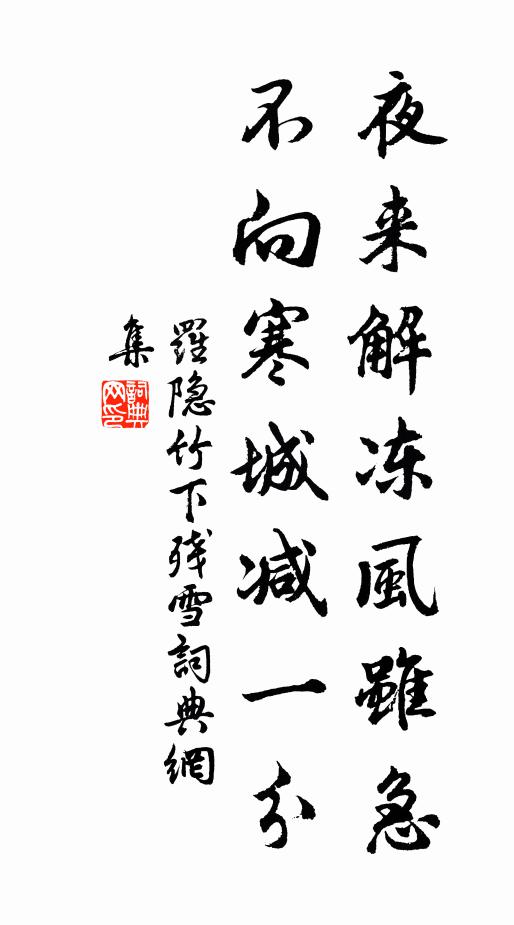 夜来解冻風雖急
不向寒城减一分
羅隐竹下残雪詞典網
集
詞典网印